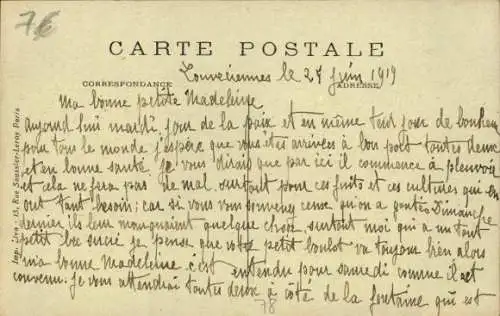 76
CARTE POSTALE
CORRESPONDANCE
ADRESSE
Louveciennes le 24 juin 1919
Ma bonne petite Madeleine
aujourd'hui mardi jour de la paix et en même temps jour de bonheur
pour tous le monde j'espère que vous êtes arrivées à bon port toutes deux
et en bonne santé. Je vous dirais que par ici il commence à pleuvoir
et cela ne fera pas de mal, surtout pour ces fruits et ces cultures qui en
ont tant besoin; car si vous vous souvenez ceux qu'on a goutés Dimanche
dernier ils leur manquaient quelque chose, surtout moi qui a un tout
petit bec sucré je pense que votre petit boulot va toujours bien alors
ma bonne Madeleine c'est entendu pour samedi comme il est
convenu. Je vous attendrai toutes deux à côté de la fontaine qui est
78
Imp. Lyon - 13, Rue Saussier-Leroy Paris